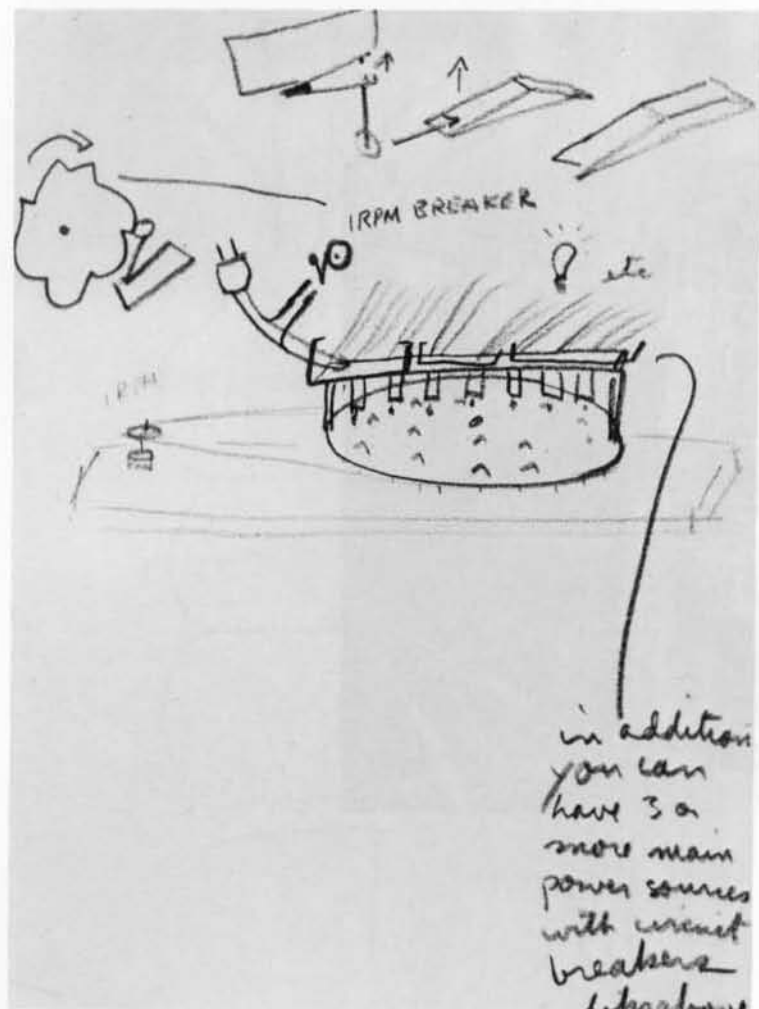 1RPM BREAKER
etc
1RPM
in addition
you can
have 3 or
more main
power sources
with circuit
breakers
like above